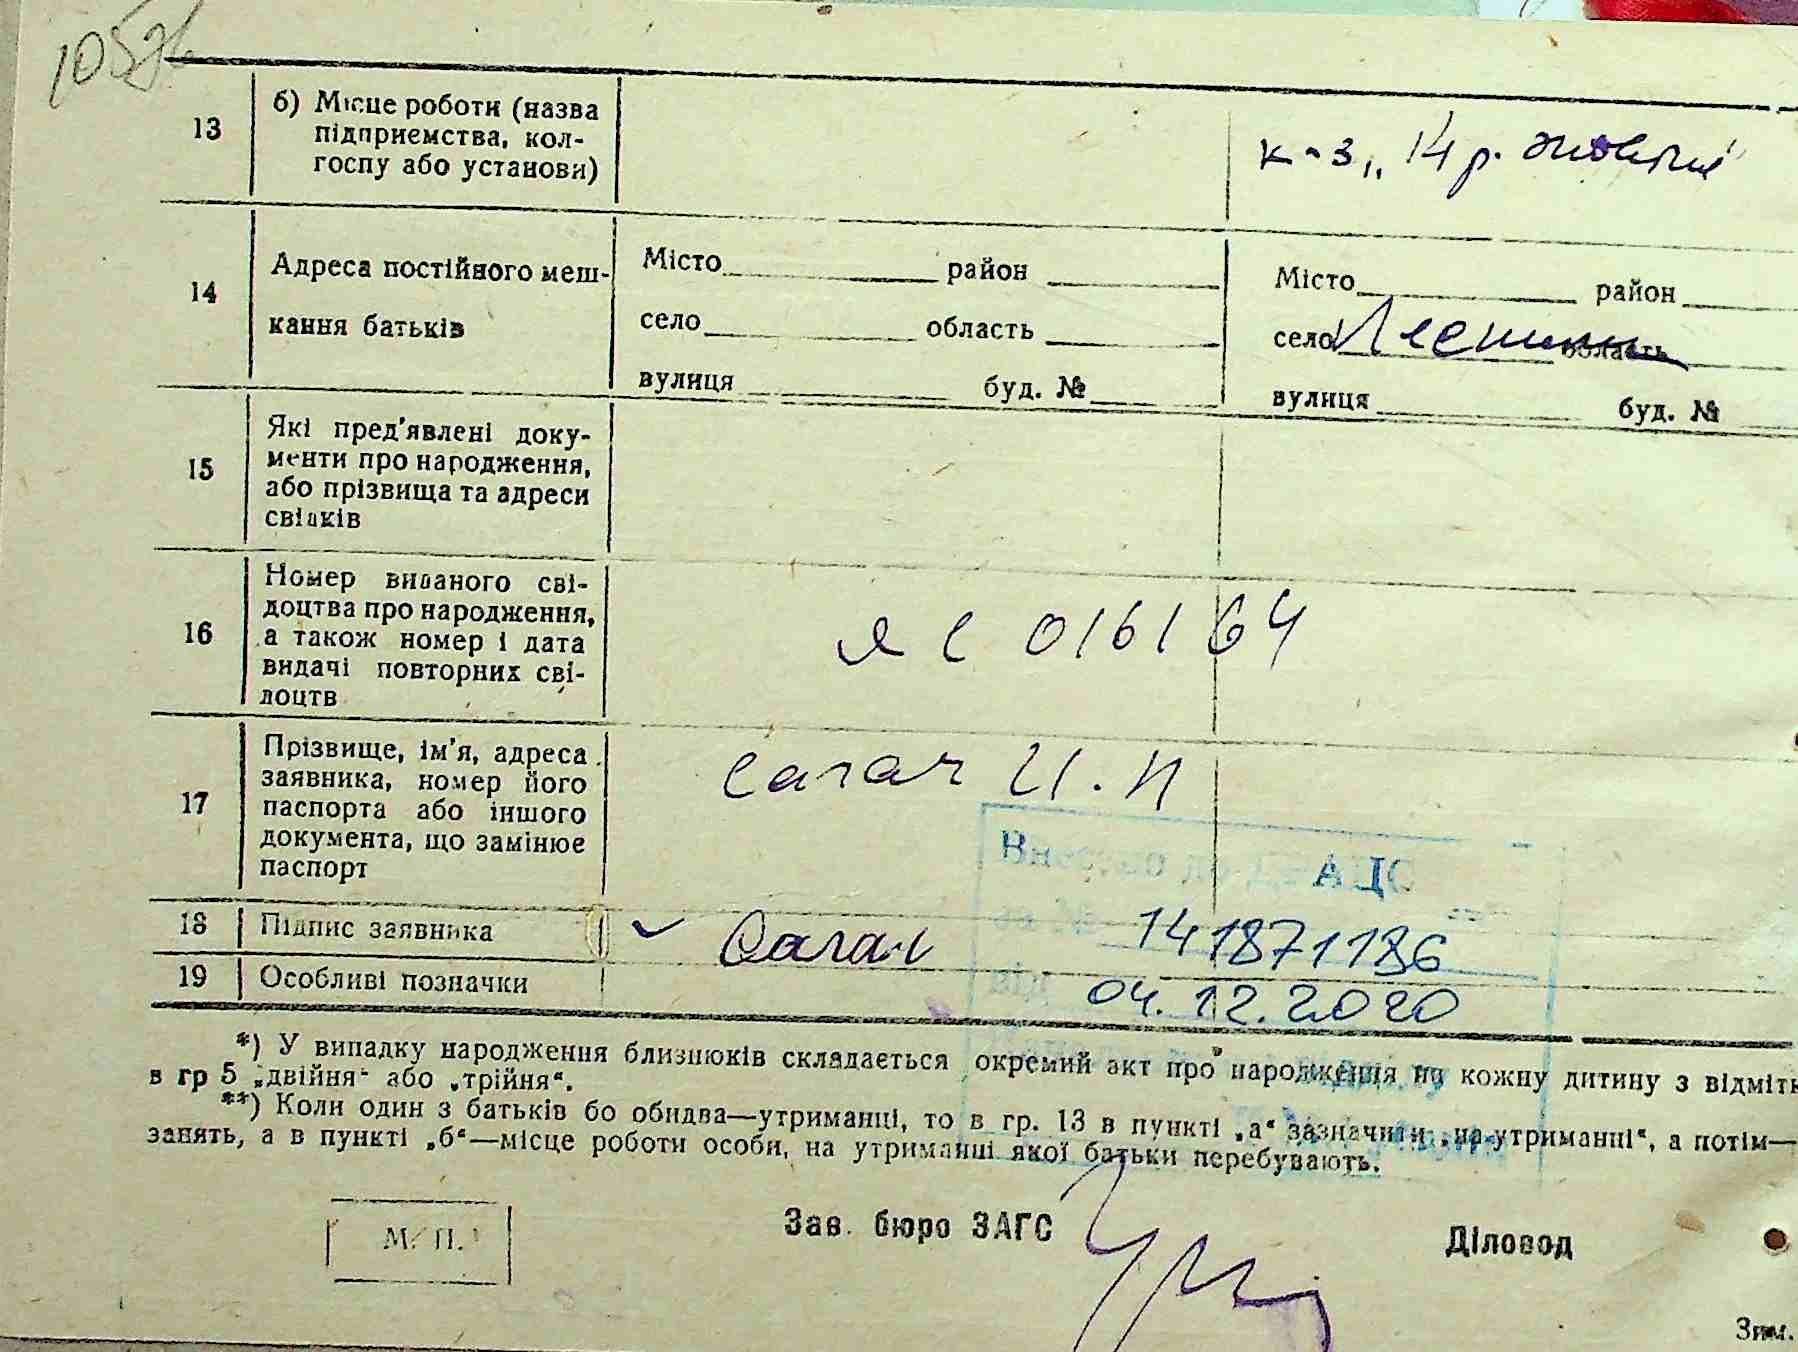 13
б) Місце роботи (назва
підприємства, кол-
госпу або установи)
к-з „14 р. жовтня"
14
Адреса постійного меш-
кання батьків
Місто район
село область
вулиця буд. №
Місто район
село область
вулиця буд. №
15
Які пред'явлені доку-
менти про народження,
або прізвища та адреси
свідків
16
Номер виданого сві-
доцтва про народження,
а також номер і дата
видачі повторних сві-
доцтв
016164
17
Прізвище, ім'я, адреса
заявника, номер його
паспорта або іншого
документа, що замінює
паспорт
Сагач И. П
18
Підпис заявника
Сагач
141871186
19
Особливі позначки
04.12.2020
*) У випадку народження близнюків складається окремий акт про народження на кожну дитину з відміт
в гр 5 „двійня“ або „трійня“.
**) Коли один з батьків бо обидва—утриманці, то в гр. 13 в пункті „а“ зазначити „на утриманні“, а потім—
занять, а в пункті „б“—місце роботи особи, на утриманні якої батьки перебувають.
М. П.
Зав. бюро ЗАГС
Діловод
Зим.